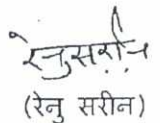 रेनु सरीन
(रेनु सरीन)